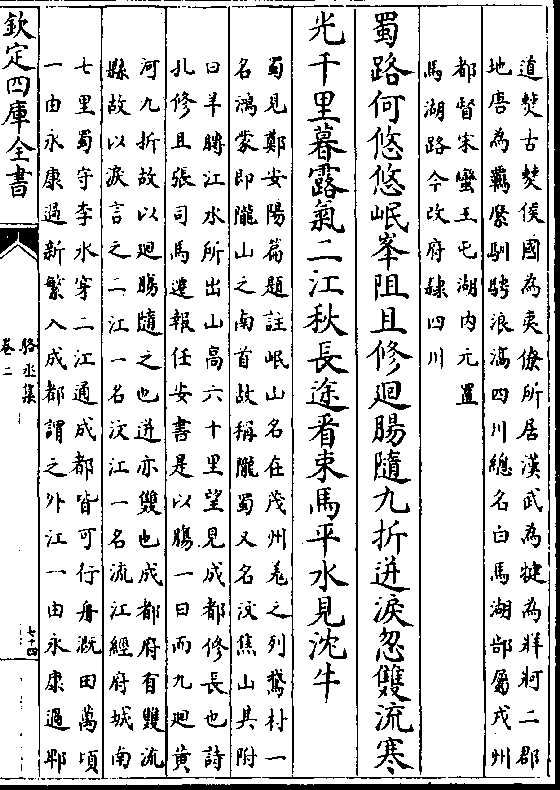 道僰古僰侯國為夷僚所居漢武為犍為牂牁二郡
地唐為羈縻馴騁浪滈四川總名白馬湖部屬戎州
都督宋蠻王屯湖内元置
馬湖路今改府隸四川
蜀路何悠悠岷峯阻且修廻腸隨九折迸淚忽雙流寒
光千里暮露氣二江秋長途看束馬平水見沈牛
蜀見鄭安陽篇題註岷山名在茂州羗之列鵝村一
名鴻蒙即隴山之南首故稱隴蜀又名汶焦山其附
曰羊膊江水所出山高六十里望見成都修長也詩
孔修且張司馬遷報任安書是以腸一日而九廻黄
河九折故以廻腸隨之也迸亦雙也成都府有雙流
縣故以淚言之二江一名汶江一名流江經府城南
七里蜀守李氷穿二江通成都皆可行舟溉田萬頃
一由永康過新繁入成都謂之外江一由永康過郫
欽定四庫全書
駱丞集
卷二
七十四